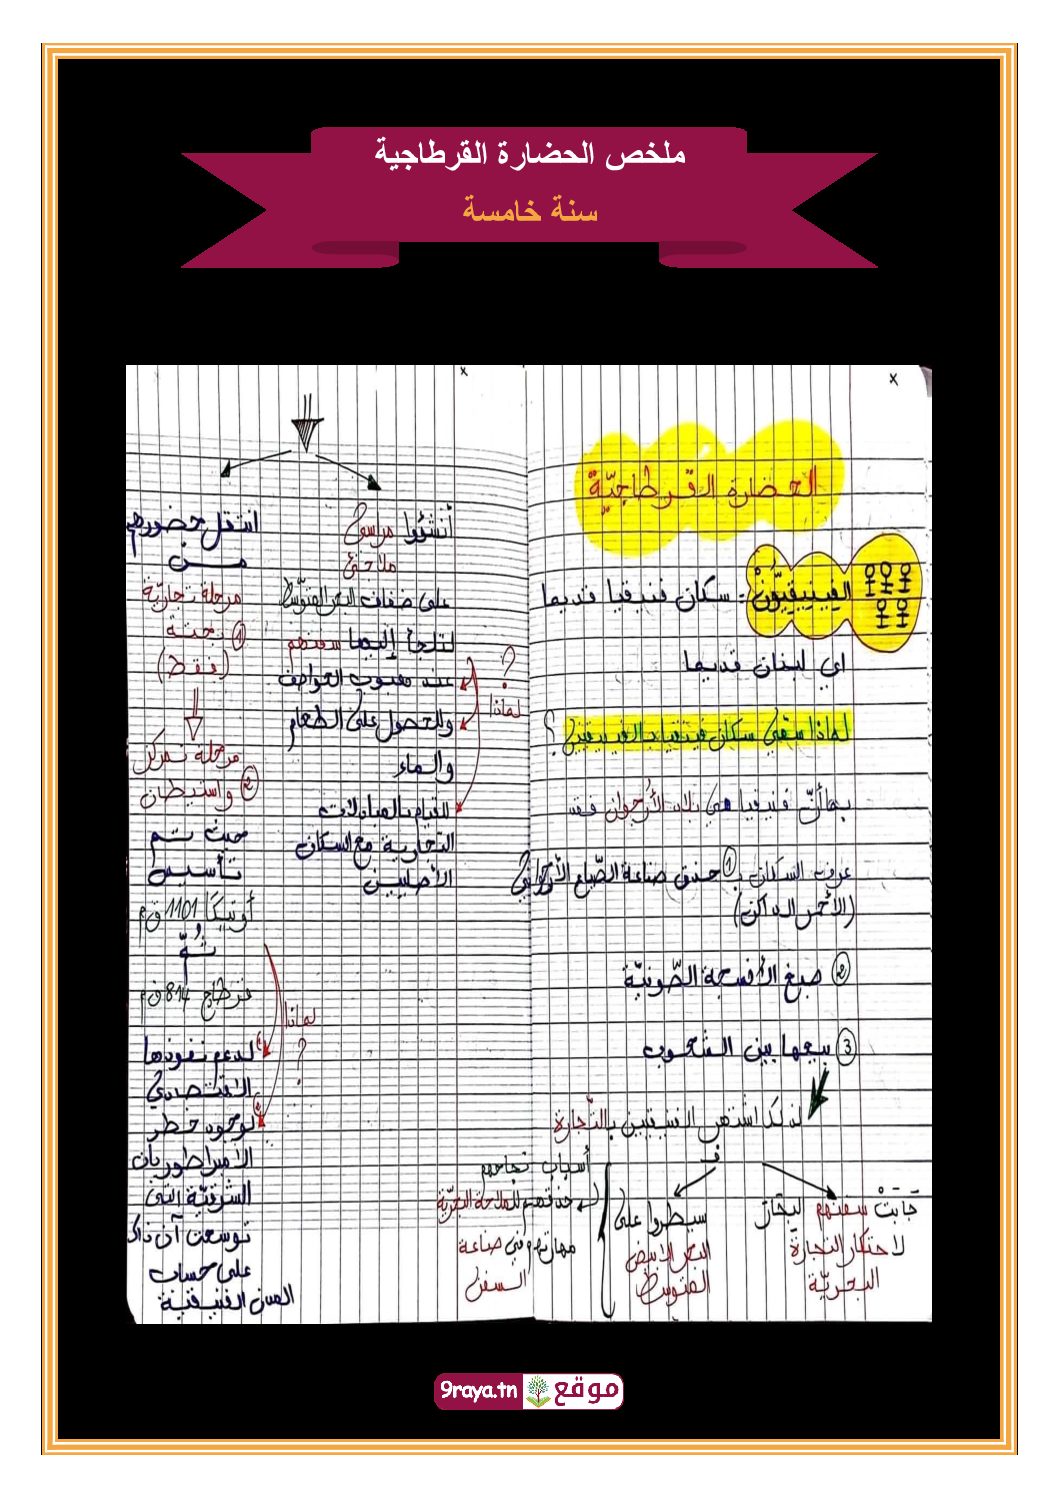 ملخص الحضارة القرطاجية
سنة خامسة
الحضارة القرطاجيّة
الفينيقيّون: سكان فنيقيا قديما
اي لبنان قديما
لماذا سمّي سكان فينيقيا بالفينيقيين؟
بما أنّ فنيقيا هي بلاد الأرجوان فقد
عرف السكان بـ ① حذق صناعة الصّباغ الأرجواني
(الأحمر الداكن)
② صبغ الأقمشة الصّوفيّة
③ بيعها بين الشعوب
لذلك اشتهر الفنيقيين بالتّجارة
فـ
جَابَتْ سفنهم البحَار
لاحتكار التجارة
البحريّة
سيطروا على
البحر الأبيض
المتوسط
أسباب نجاحهم
حذقهم للملاحة البحريّة
مهارتهم في صناعة
السفن
أنشؤوا مراسي
ملاجئ
على ضفاف البحر المتوسّط
لتلجأ إليها سفنهم
عند هبوب العواصف
وللحصول على الطعام
والماء
للقيام بالمبادلات
التجارية مع السكان
الأصليين
لماذا
؟
انتقل حضورهم
من
مرحلة تجاريّة
① بحتة
(فقط)
مرحلة تمركز
② واستيطان
حيث تم
تأسيس
أوتيكا 1101 ق م
ثُمّ
قرطاج 814 ق م
لماذا
؟
لدعم نفوذها
الاقتصادي
لوجود خطر
الامبراطوريات
الشرقيّة التي
توسعت آن ذاك
على حساب
المدن الفنيقية
9raya.tn موقع